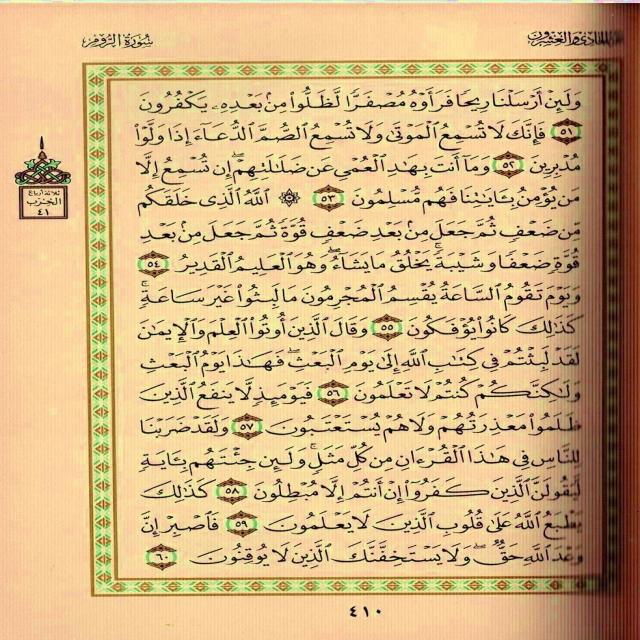 الحادى والعشرون
سُورَةُ الرُّومِ
وَلَئِنْ أَرْسَلْنَا رِيحًا فَرَأَوْهُ مُصْفَرًّا لَّظَلُّوا مِنۢ بَعْدِهِۦ يَكْفُرُونَ
٥١ فَإِنَّكَ لَا تُسْمِعُ الْمَوْتَىٰ وَلَا تُسْمِعُ الصُّمَّ الدُّعَاءَ إِذَا وَلَّوْا
مُدْبِرِينَ ٥٢ وَمَا أَنتَ بِهَادِ الْعُمْيِ عَن ضَلَالَتِهِمْ ۖ إِن تُسْمِعُ إِلَّا
مَن يُؤْمِنُ بِـَٔايَاتِنَا فَهُم مُّسْلِمُونَ ٥٣ ۞ اللَّهُ الَّذِي خَلَقَكُم
مِّن ضَعْفٍ ثُمَّ جَعَلَ مِنۢ بَعْدِ ضَعْفٍ قُوَّةً ثُمَّ جَعَلَ مِنۢ بَعْدِ
قُوَّةٍ ضَعْفًا وَشَيْبَةً ۚ يَخْلُقُ مَا يَشَاءُ ۖ وَهُوَ الْعَلِيمُ الْقَدِيرُ ٥٤
وَيَوْمَ تَقُومُ السَّاعَةُ يُقْسِمُ الْمُجْرِمُونَ مَا لَبِثُوا غَيْرَ سَاعَةٍ ۚ
كَذَٰلِكَ كَانُوا يُؤْفَكُونَ ٥٥ وَقَالَ الَّذِينَ أُوتُوا الْعِلْمَ وَالْإِيمَٰنَ
لَقَدْ لَبِثْتُمْ فِي كِتَٰبِ اللَّهِ إِلَىٰ يَوْمِ الْبَعْثِ ۖ فَهَٰذَا يَوْمُ الْبَعْثِ
وَلَٰكِنَّكُمْ كُنتُمْ لَا تَعْلَمُونَ ٥٦ فَيَوْمَئِذٍ لَّا يَنفَعُ الَّذِينَ
ظَلَمُوا مَعْذِرَتُهُمْ وَلَا هُمْ يُسْتَعْتَبُونَ ٥٧ وَلَقَدْ ضَرَبْنَا
لِلنَّاسِ فِي هَٰذَا الْقُرْءَانِ مِن كُلِّ مَثَلٍ ۚ وَلَئِن جِئْتَهُم بِـَٔايَةٍ
لَّيَقُولَنَّ الَّذِينَ كَفَرُوا إِنْ أَنتُمْ إِلَّا مُبْطِلُونَ ٥٨ كَذَٰلِكَ
يَطْبَعُ اللَّهُ عَلَىٰ قُلُوبِ الَّذِينَ لَا يَعْلَمُونَ ٥٩ فَاصْبِرْ إِنَّ
وَعْدَ اللَّهِ حَقٌّ ۖ وَلَا يَسْتَخِفَّنَّكَ الَّذِينَ لَا يُوقِنُونَ ٦٠
ثلاثة أرباع
الحزب
٤١
٤١٠